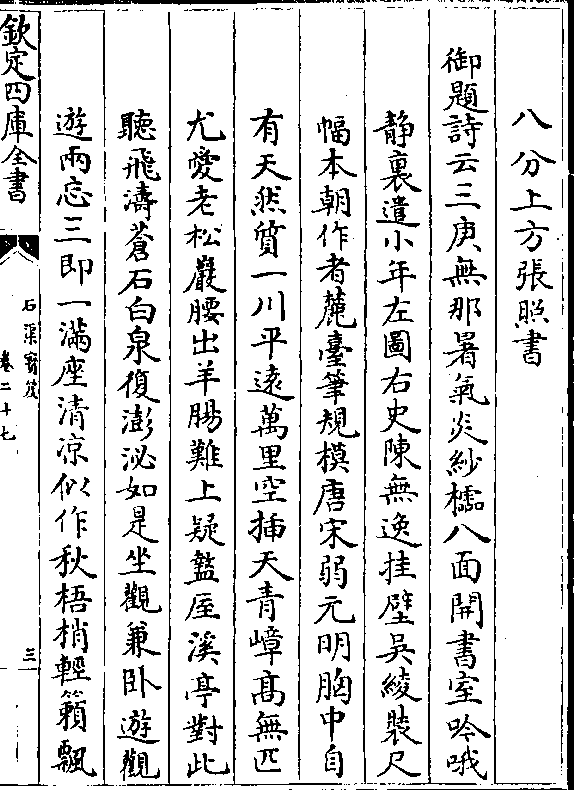 八分上方張照書
御題詩云三庚無那暑氣炎紗櫺八面開書室吟哦
静裏遣小年左圖右史陳無逸挂壁吳綾裝尺
幅本朝作者麓臺筆規模唐宋弱元明胸中自
有天然質一川平遠萬里空插天青嶂髙無匹
尤愛老松巖腰出羊腸難上疑盩厔溪亭對此
聽飛濤蒼石白泉復澎泌如是坐觀兼卧遊觀
遊兩忘三即一滿座清凉似作秋梧梢輕籟飄
欽定四庫全書
石渠寳笈
卷二十七
三